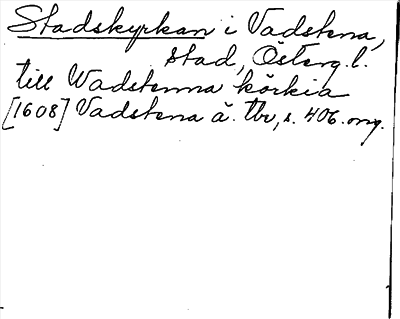 Stadskyrkan i Vadstena,
stad, Österg.l.
till Wadstenna körkia
[1608] Vadstena ä. tbr, s. 406. org.